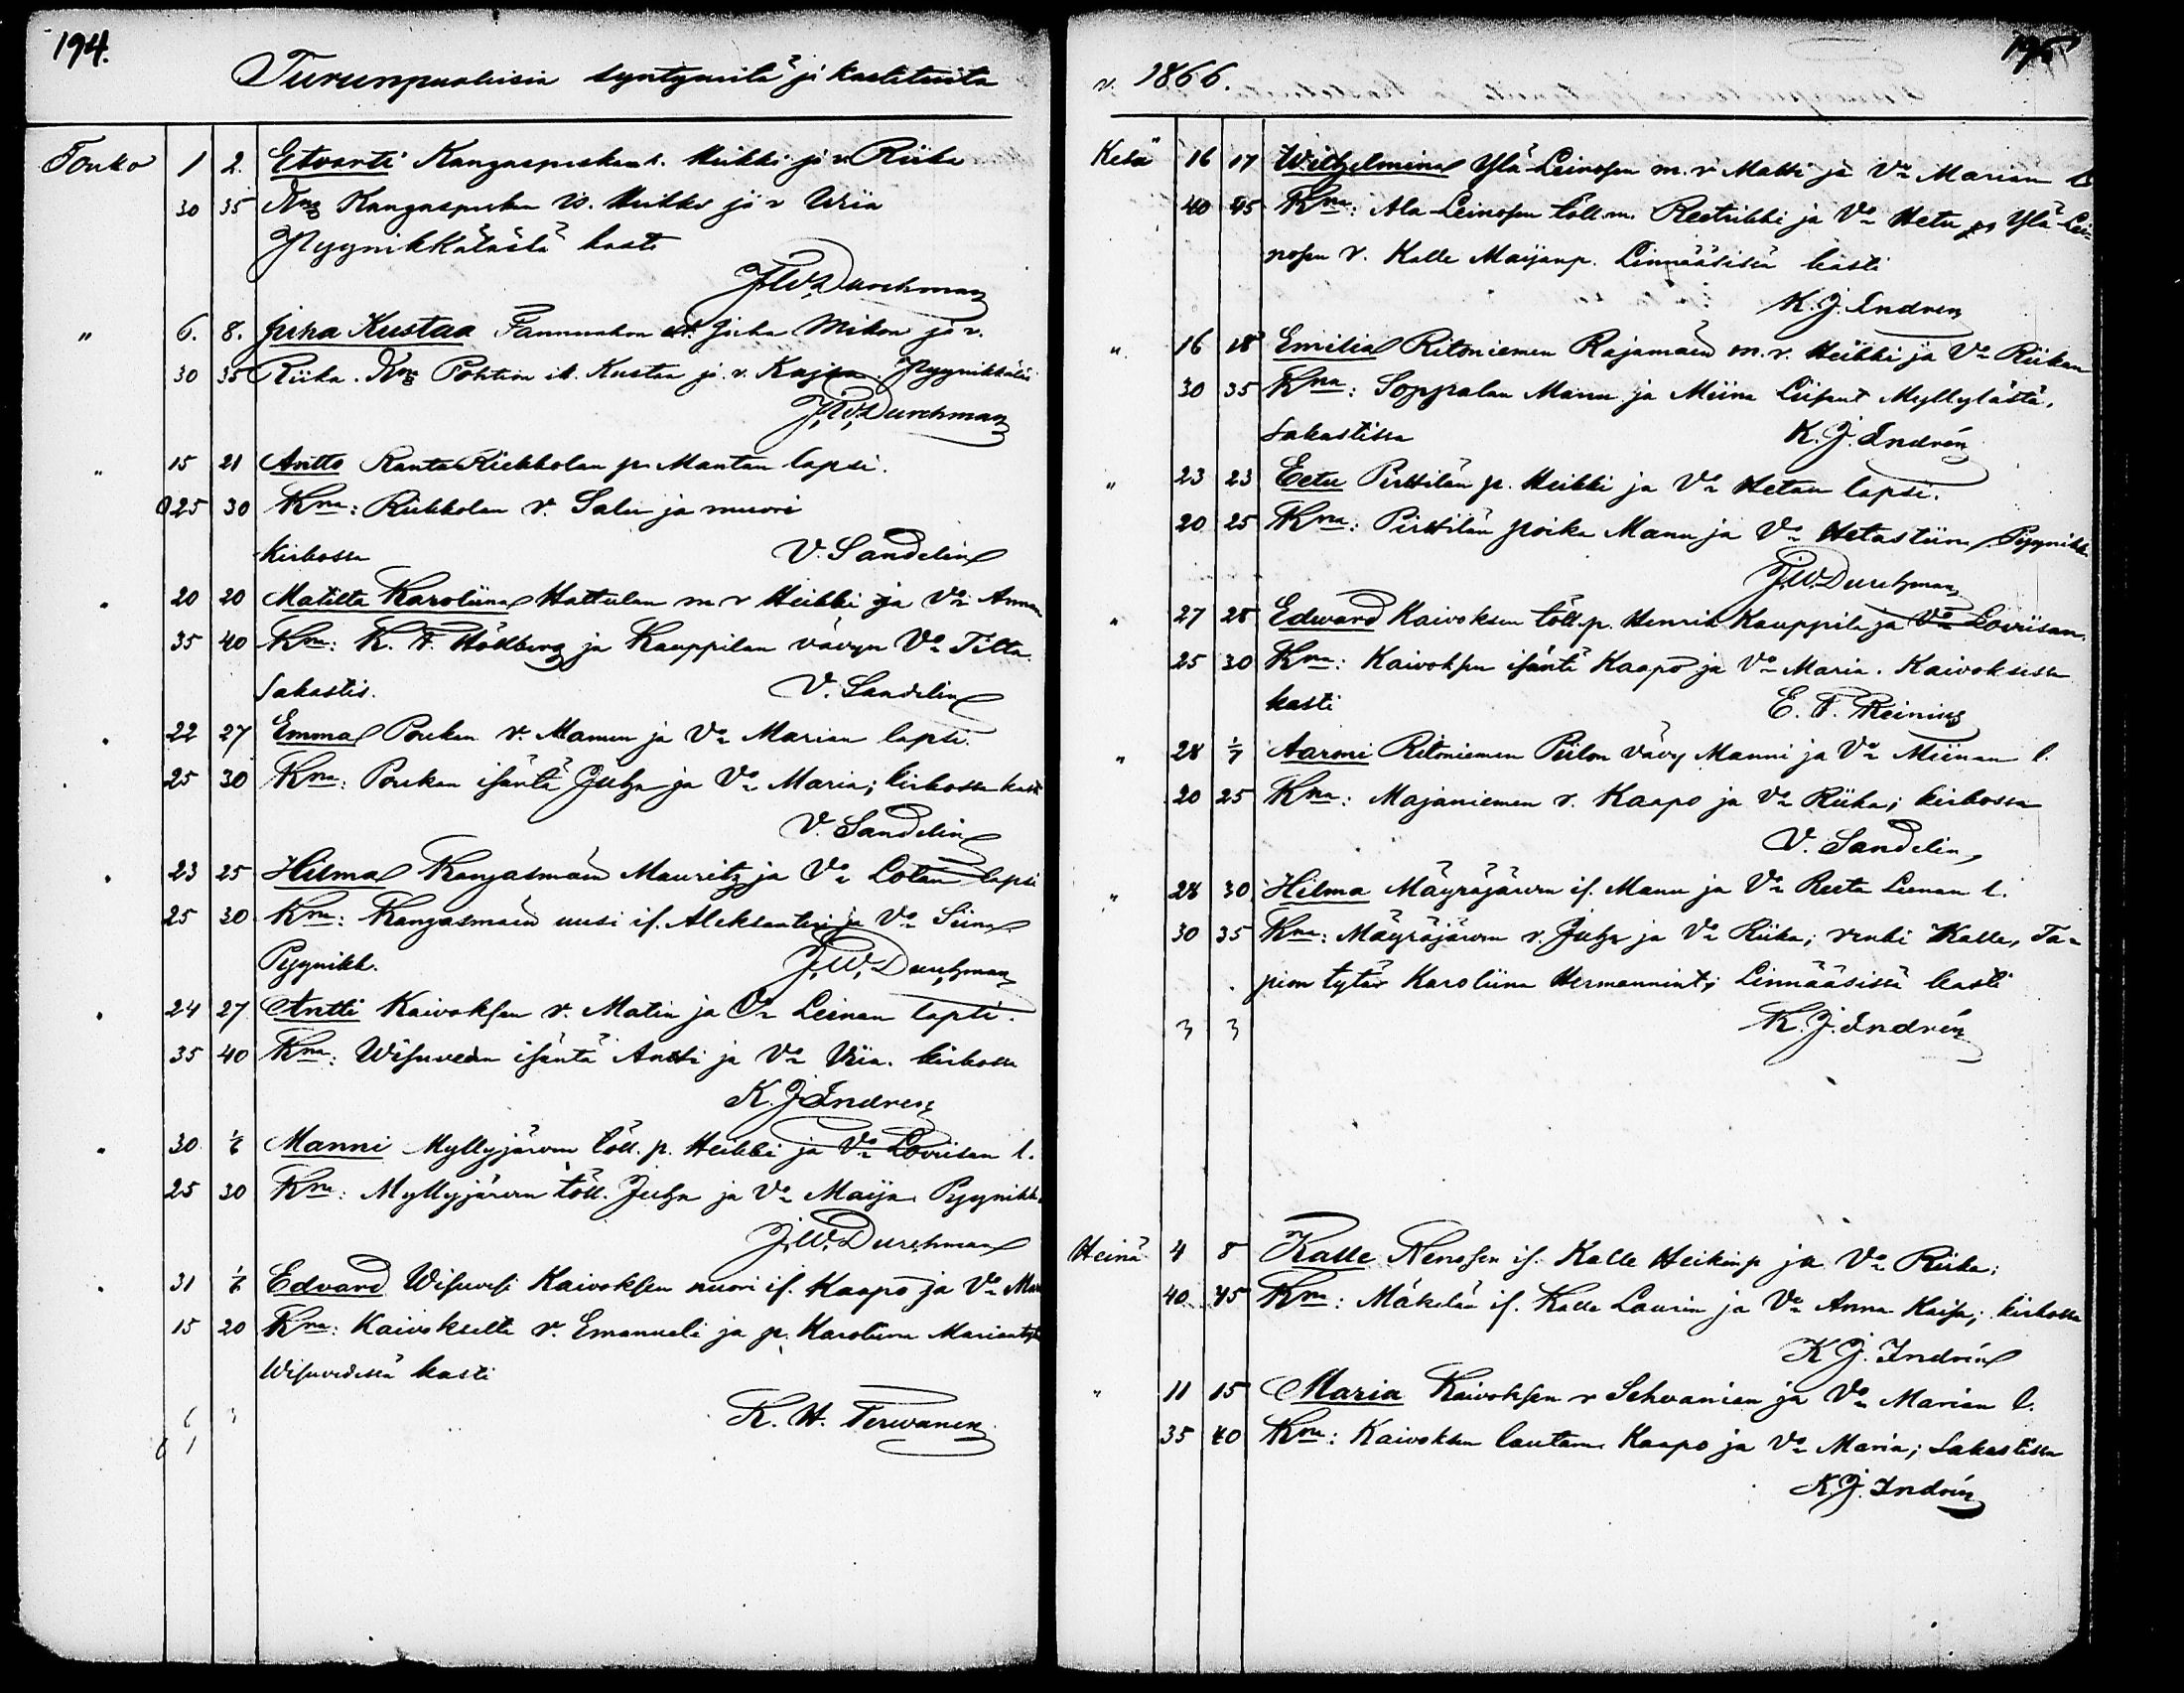 194.
Turunpuolisia syntyneitä ja kastetuita
Touko 1 2. Etvarti Kangaspeskan t. Heikki ja v. Riika
30 35 Km Kangaspeskan v. Heikki ja v Uria
Pyynikkälästä kasti
J.W. Durchman
" 6. 8. Juha Kustaa Juha Mikon ja v.
30 35 Riika. Km Pohtion it. Kustaa ja v. Kajsa. Pyynikkälä
J.W. Durchman
" 15 21 Antto Ranta Riekkolan p. Mantan lapsi.
25 30 Km: Riekkolan v. Salu ja muori
kirkossa V. Sandelin
" 20 20 Matilta Karoliina Hattulan m v Heikki ja Vo Annan
35 40 Km: K. F. Hökberg ja Kauppilan vävyn Vo Tilta.
Sakastis. V. Sandelin
" 22 27 Emma Poukan v. Manun ja Vo Marian lapsi.
25 30 Km: Poukan isäntä Juha ja Vo Maria; kirkossa kasti
V. Sandelin
" 23 25 Hilma Kangasmäen Mauritz ja Vo Lotan lapsi
25 30 Km: Kangasmäen uusi is. Aleksanteri ja Vo Siina
Pyynikk. J.W. Durchman
" 24 27 Antti Kaivoksen v. Matin ja Vo Leenan lapsi.
35 40 Km: Wesuveden isäntä Antti ja Vo Uria. kirkossa
K. J. Indren
" 30 1/6 Manni Myllyjärven töll. p. Heikki ja Vo Loviisan l.
25 30 Km: Myllyjärven töll. Juha ja Vo Maija Pyynikk.
J.W. Durchman
" 31 1/6 Edvard Wisuvesi Kaivoksen nuori is. Kaapo ja Vo
15 20 Km: Kaivokselta v. Emanueli ja p. Karoliina
Wisuvedessä kasti
K. H. Terwanen
v. 1866.
195
Kesä 16 17 Wilhelmina Ylä-Leinosen m. v Matti ja Vo Marian l.
40 45 Km: Ala-Leinosen töll. m. Reetrikki ja Vo Hetu ja Ylä-Lei-
nosen v. Kalle Maijanp. Linnääsissä kasti
K. J. Indren
" 16 18 Emilia Ritoniemen Rajamäen m. v. Heikki ja Vo Riikan
30 35 Km: Soppalan Manu ja Miina Myllylästä.
Sakastissa K. J. Indrén
" 23 23 Eetu Pirttilän p. Heikki ja Vo Hetan lapsi.
20 25 Km: Pirttilän poika Manu ja Vo Hetastiina Pyynikk.
J.W. Durchman
" 27 28 Edward Kaivoksen töll. p. Henrik Kauppila ja Vo Loviisan.
25 30 Km: Kaivoksen isäntä Kaapo ja Vo Maria. Kaivoksessa
kasti E. F. Reinius
" 28 1/7 Aaroni Ritoniemen Piilon vävy Manni ja Vo Miinan l.
20 25 Km: Majaniemen v. Kaapo ja Vo Riika; kirkossa
V. Sandelin
" 28 30 Hilma Mäyräjärven is. Manu ja Vo Reeta Leenan l.
30 35 Km: Mäyräjärven v. Juha ja Vo Riika; renki Kalle, Ta-
pion tytär Karoliina Hermannint; Linnääsissä kasti
3 3 K. J. Indrén
Heinä 4 8 Kalle Nenosen is. Kalle Heikinp ja Vo Riika:
40 45 Km: Mäkelän is. Kalle Laurin ja Vo Anna Kaisa; kirkossa
K J. Indrén
" 11 15 Maria Kaivoksen v Sehvanien ja Vo Marian l.
35 40 Km: Kaivoksen lautam. Kaapo ja Vo Maria; Sakastissa
K. J. Indrén